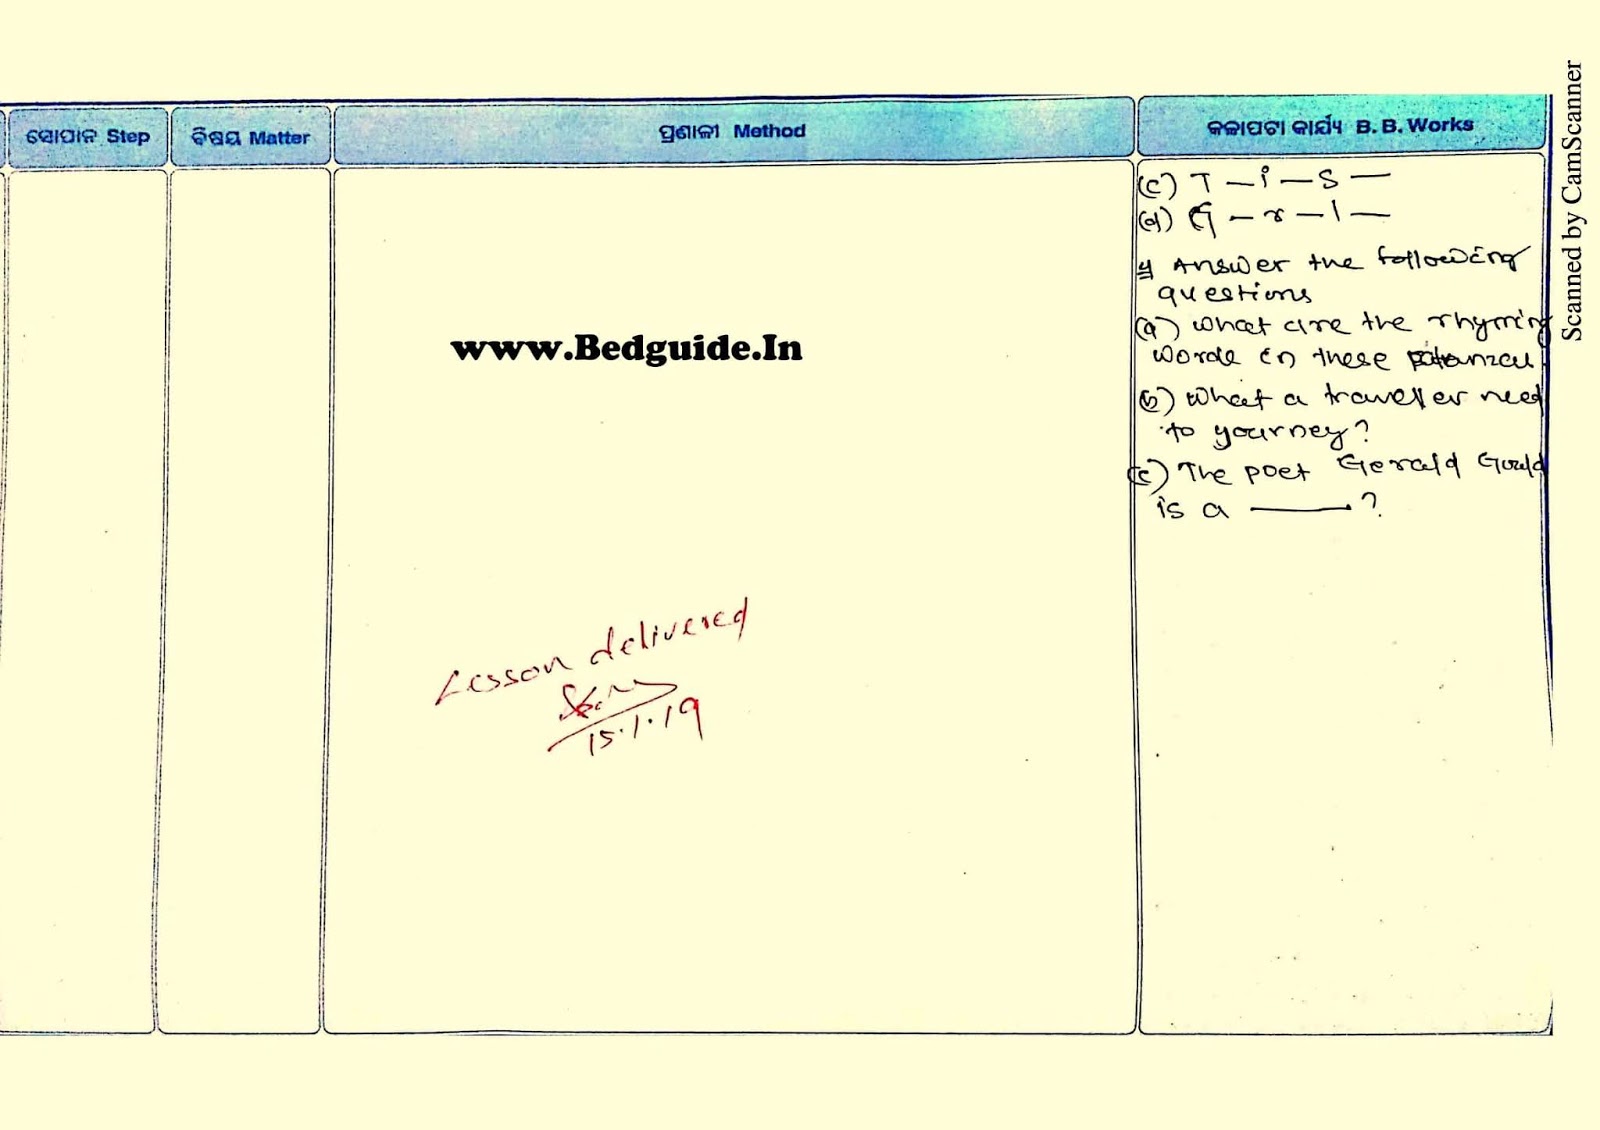 ସୋପାନ Step
ବିଷୟ Matter
ପ୍ରଣାଳୀ Method
କଳାପଟା କାର୍ଯ୍ୟ B. B. Works
(c) T — i — S —
(d) G — r — l —
4 Answer the following
questions
(a) What are the rhyming
words in these
(b) What a traveller need
to yourney?
(c) The poet Gerald Gould
is a ——— ?
www.Bedguide.In
Lesson delivered
15.1.19
Scanned by CamScanner